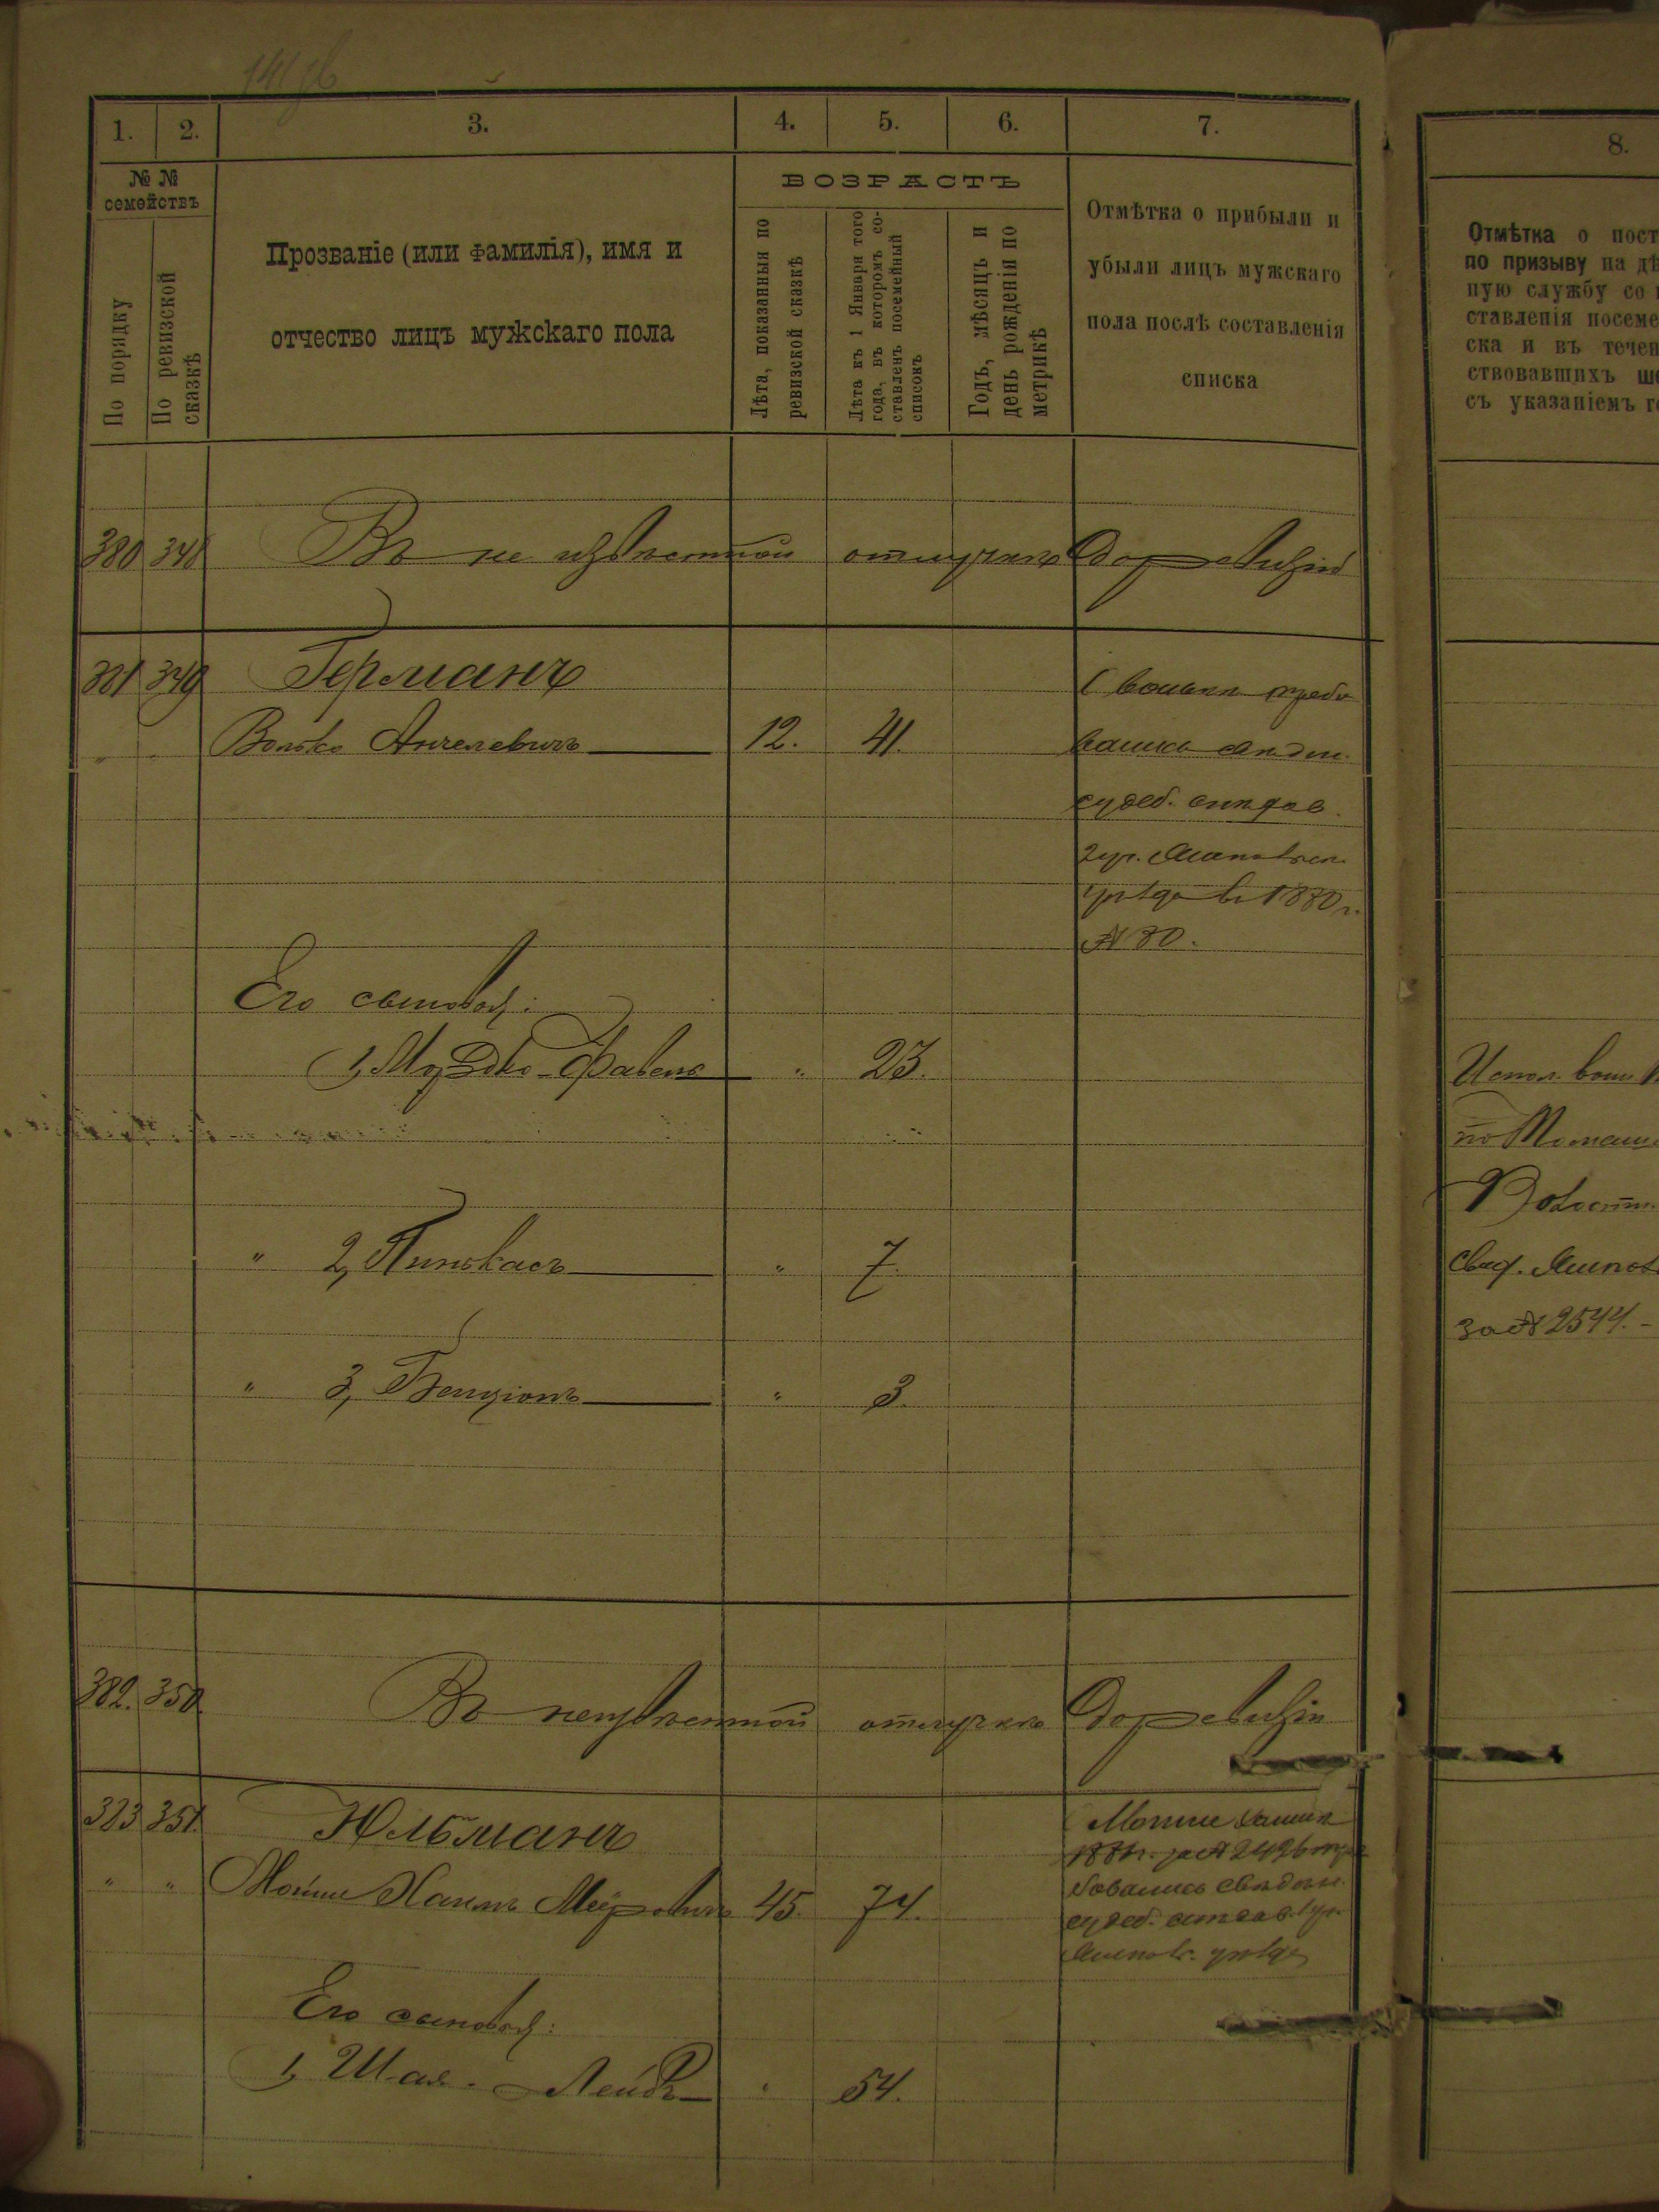 1. 2. 3. 4. 5. 6. 7.
№ №
семействъ
По порядку
По ревизской
сказкѣ
Прозваніе (или фамилія), имя и
отчество лицъ мужскаго пола
ВОЗРАСТЪ
Лѣта, показанныя по
ревизской сказкѣ
Лѣта къ 1 Января того
года, въ которомъ со-
ставленъ посемейный
списокъ
Годъ, мѣсяцъ и
день рожденія по
метрикѣ
Отмѣтка о прибыли и
убыли лицъ мужскаго
пола послѣ составленія
списка
380 348 Въ не извѣстной отлучкѣ до ревизіи
381 349 Германъ
" " Волько Анчелевичъ 12. 41.
судеб.
уѣзда въ 1880 г.
№ 80.
Его сыновья:
1, Мордко-Фавель " 23.
" 2, Пинькасъ " 7.
" 3, Бенціонъ " 3.
382. 350. Въ неизвѣстной отлучкѣ до ревизіи
383 351. Юльманъ
" " Мошко Хаимъ Меіровичъ 45. 74.
за № 2426
судеб.
уѣзда
Его сыновья:
1, Шая-Лейбъ " 54.
8.
Отмѣтка о пост
по призыву на дѣ
ную службу со
ставленія посеме
ска и въ течен
ствовавшихъ
съ указаніемъ г
за № 2544.-